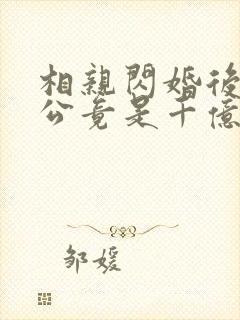 相親閃婚後
公竟是千億
邹媛